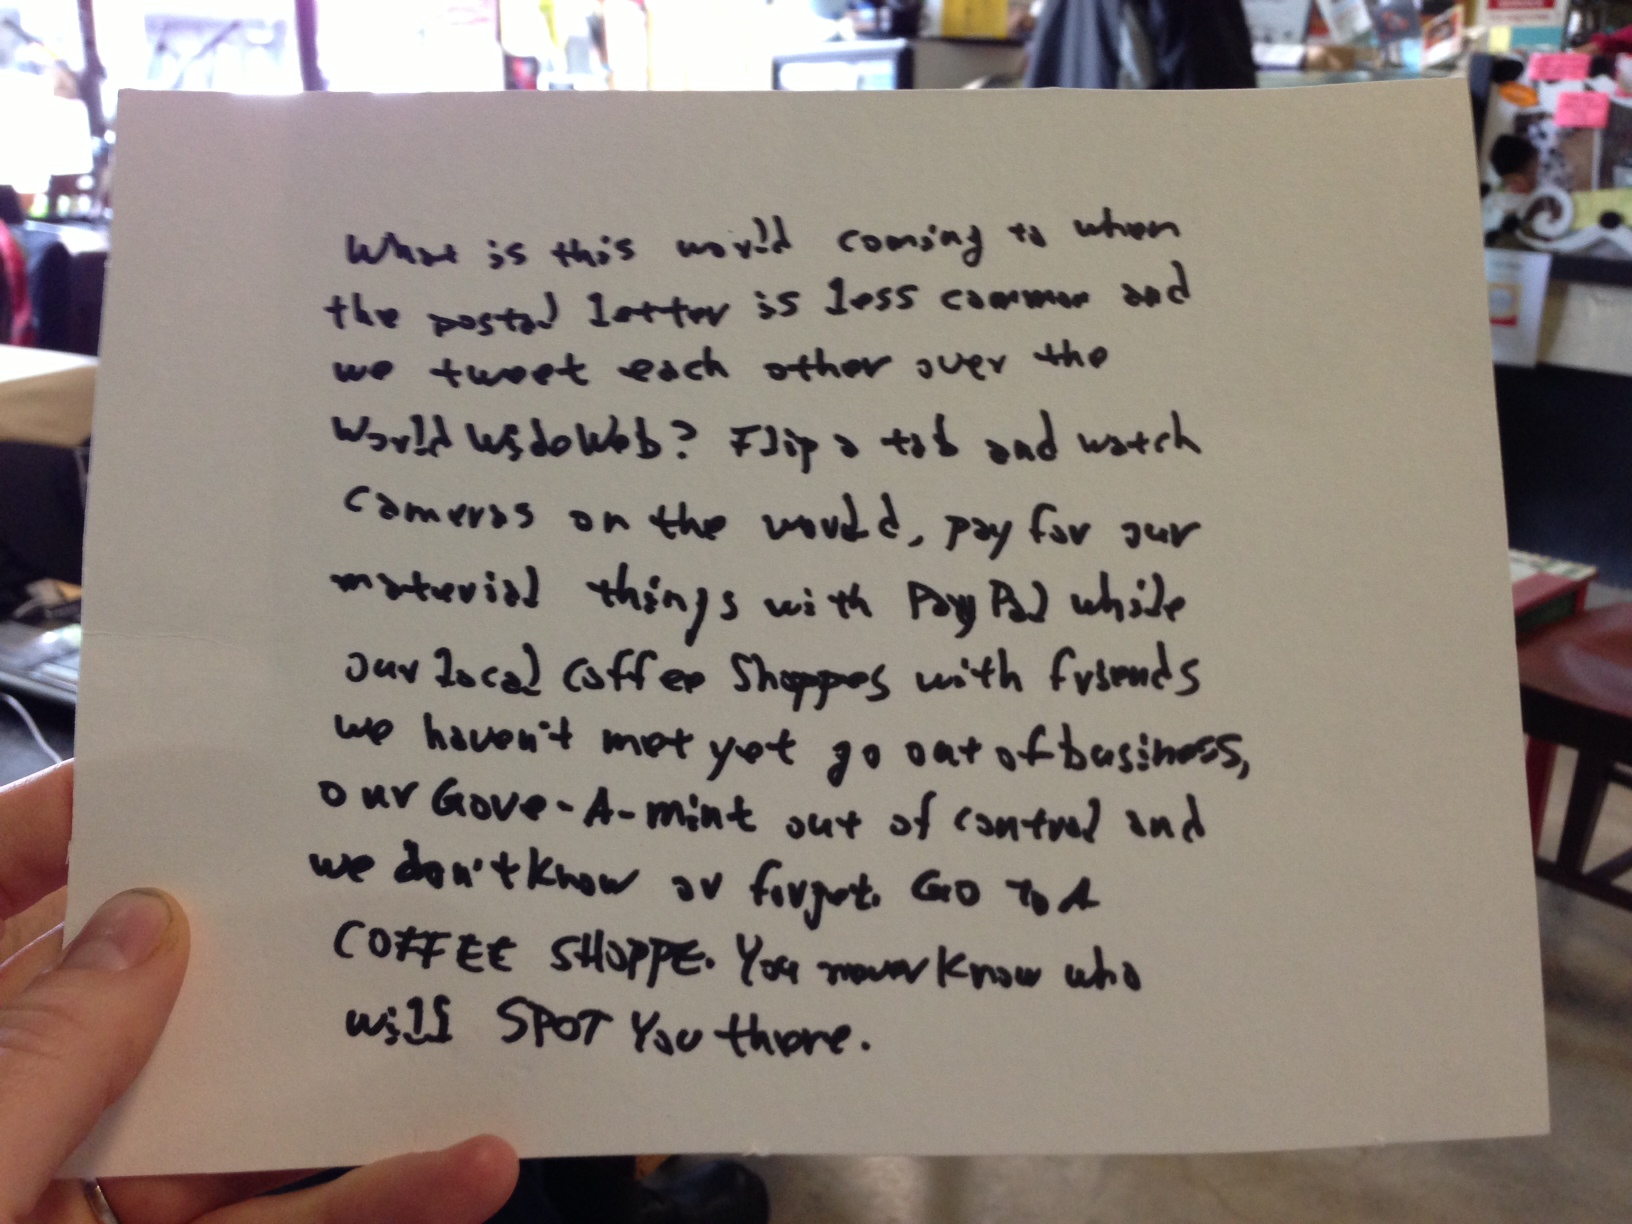 What is this world coming to when
the postal letter is less common and
we tweet each other over the
World Wide Web? Flip a tab and watch
cameras on the world, pay for our
material things with PayPal while
our local coffee Shoppes with friends
we haven't met yet go out of business,
our Gove-A-mint out of control and
we don't know or forget. GO TO A
COFFEE SHOPPE. You never know who
will SPOT You there.